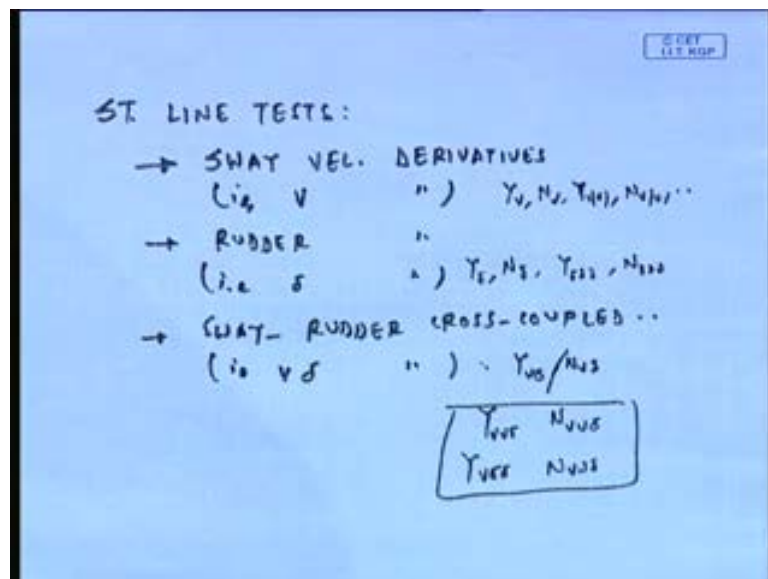 © CET
I.I.T. KGP
ST. LINE TESTS:
→ SWAY VEL. DERIVATIVES
(ie, v " ) Yv, Nv, Yv|v|, Nv|v|, ..
→ RUDDER "
(i.e δ " ) Yδ, Nδ, Yδδδ, Nδδδ
→ SWAY- RUDDER CROSS-COUPLED ..
(ie vδ " ) Yvδ/Nvδ
Yvvδ Nvvδ
Yvδδ Nvδδ